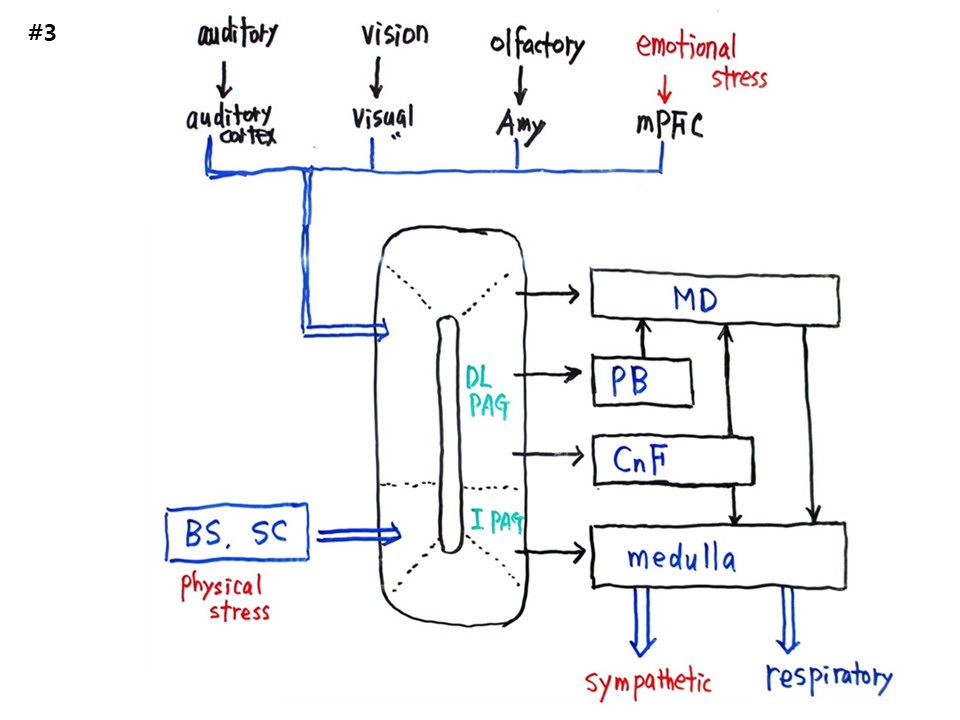 #3
auditory
vision
olfactory
emotional
stress
auditory
cortex
visual
"
Amy
mPFC
MD
DL
PAG
PB
CnF
l PAG
BS, SC
medulla
physical
stress
sympathetic
respiratory